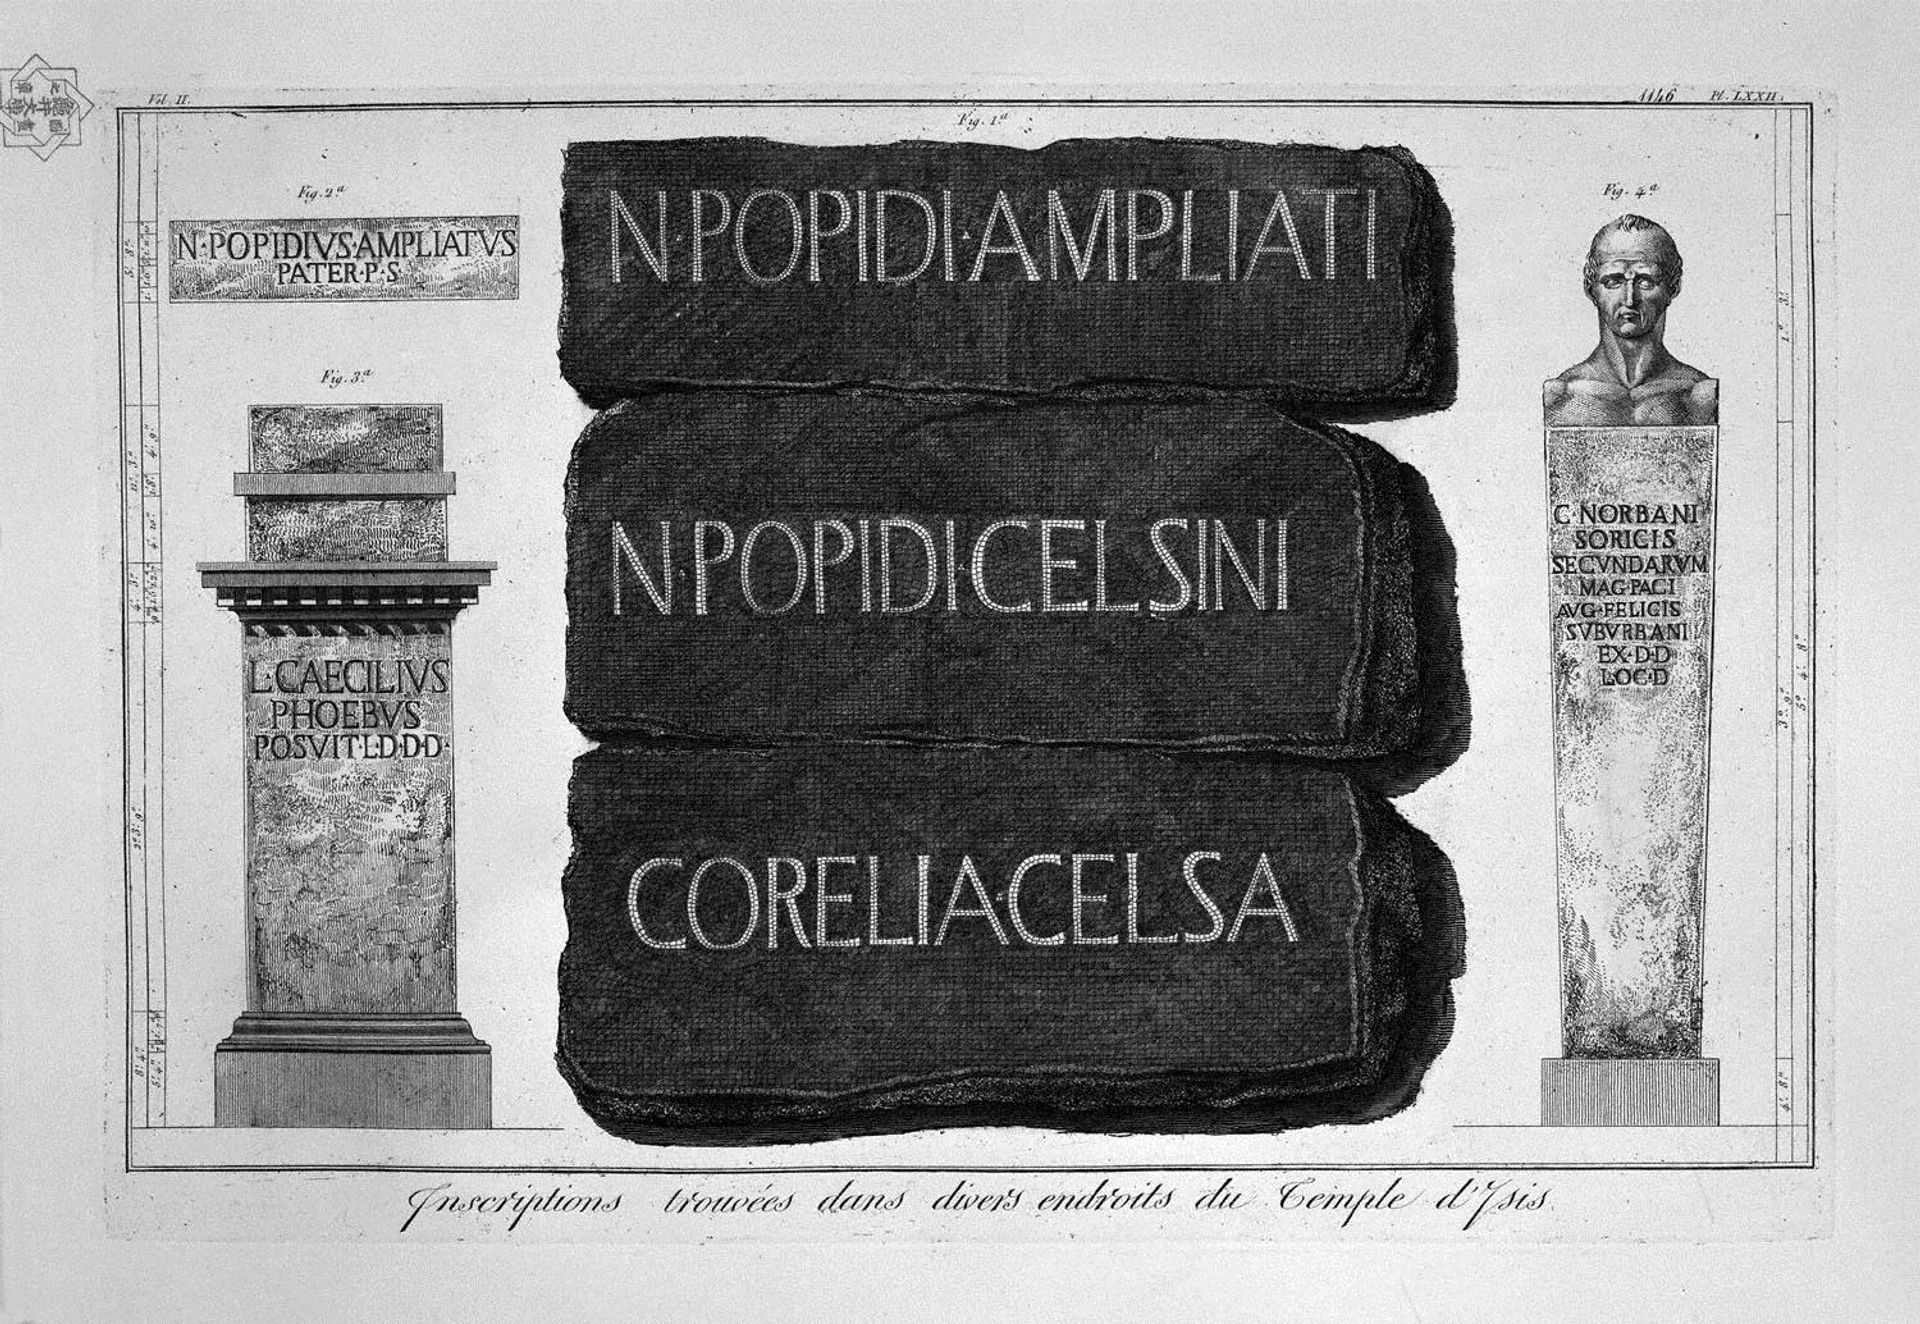 Vol. II.
1146 Pl. LXXII.
Fig. 1.a
N·POPIDI·AMPLIATI
N·POPIDI·CELSINI
CORELIA·CELSA
Fig. 2.a
N·POPIDIVS·AMPLIATVS
PATER·P·S
Fig. 3.a
L·CAECILIVS
PHOEBVS
POSVIT·L·D·D·D·
Fig. 4.a
C·NORBANI
SORICIS
SECVNDARVM
MAG·PACI
AVG·FELICIS
SVBVRBANI
EX·D·D
LOC·D
Inscriptions trouvées dans divers endroits du Temple d'Isis.